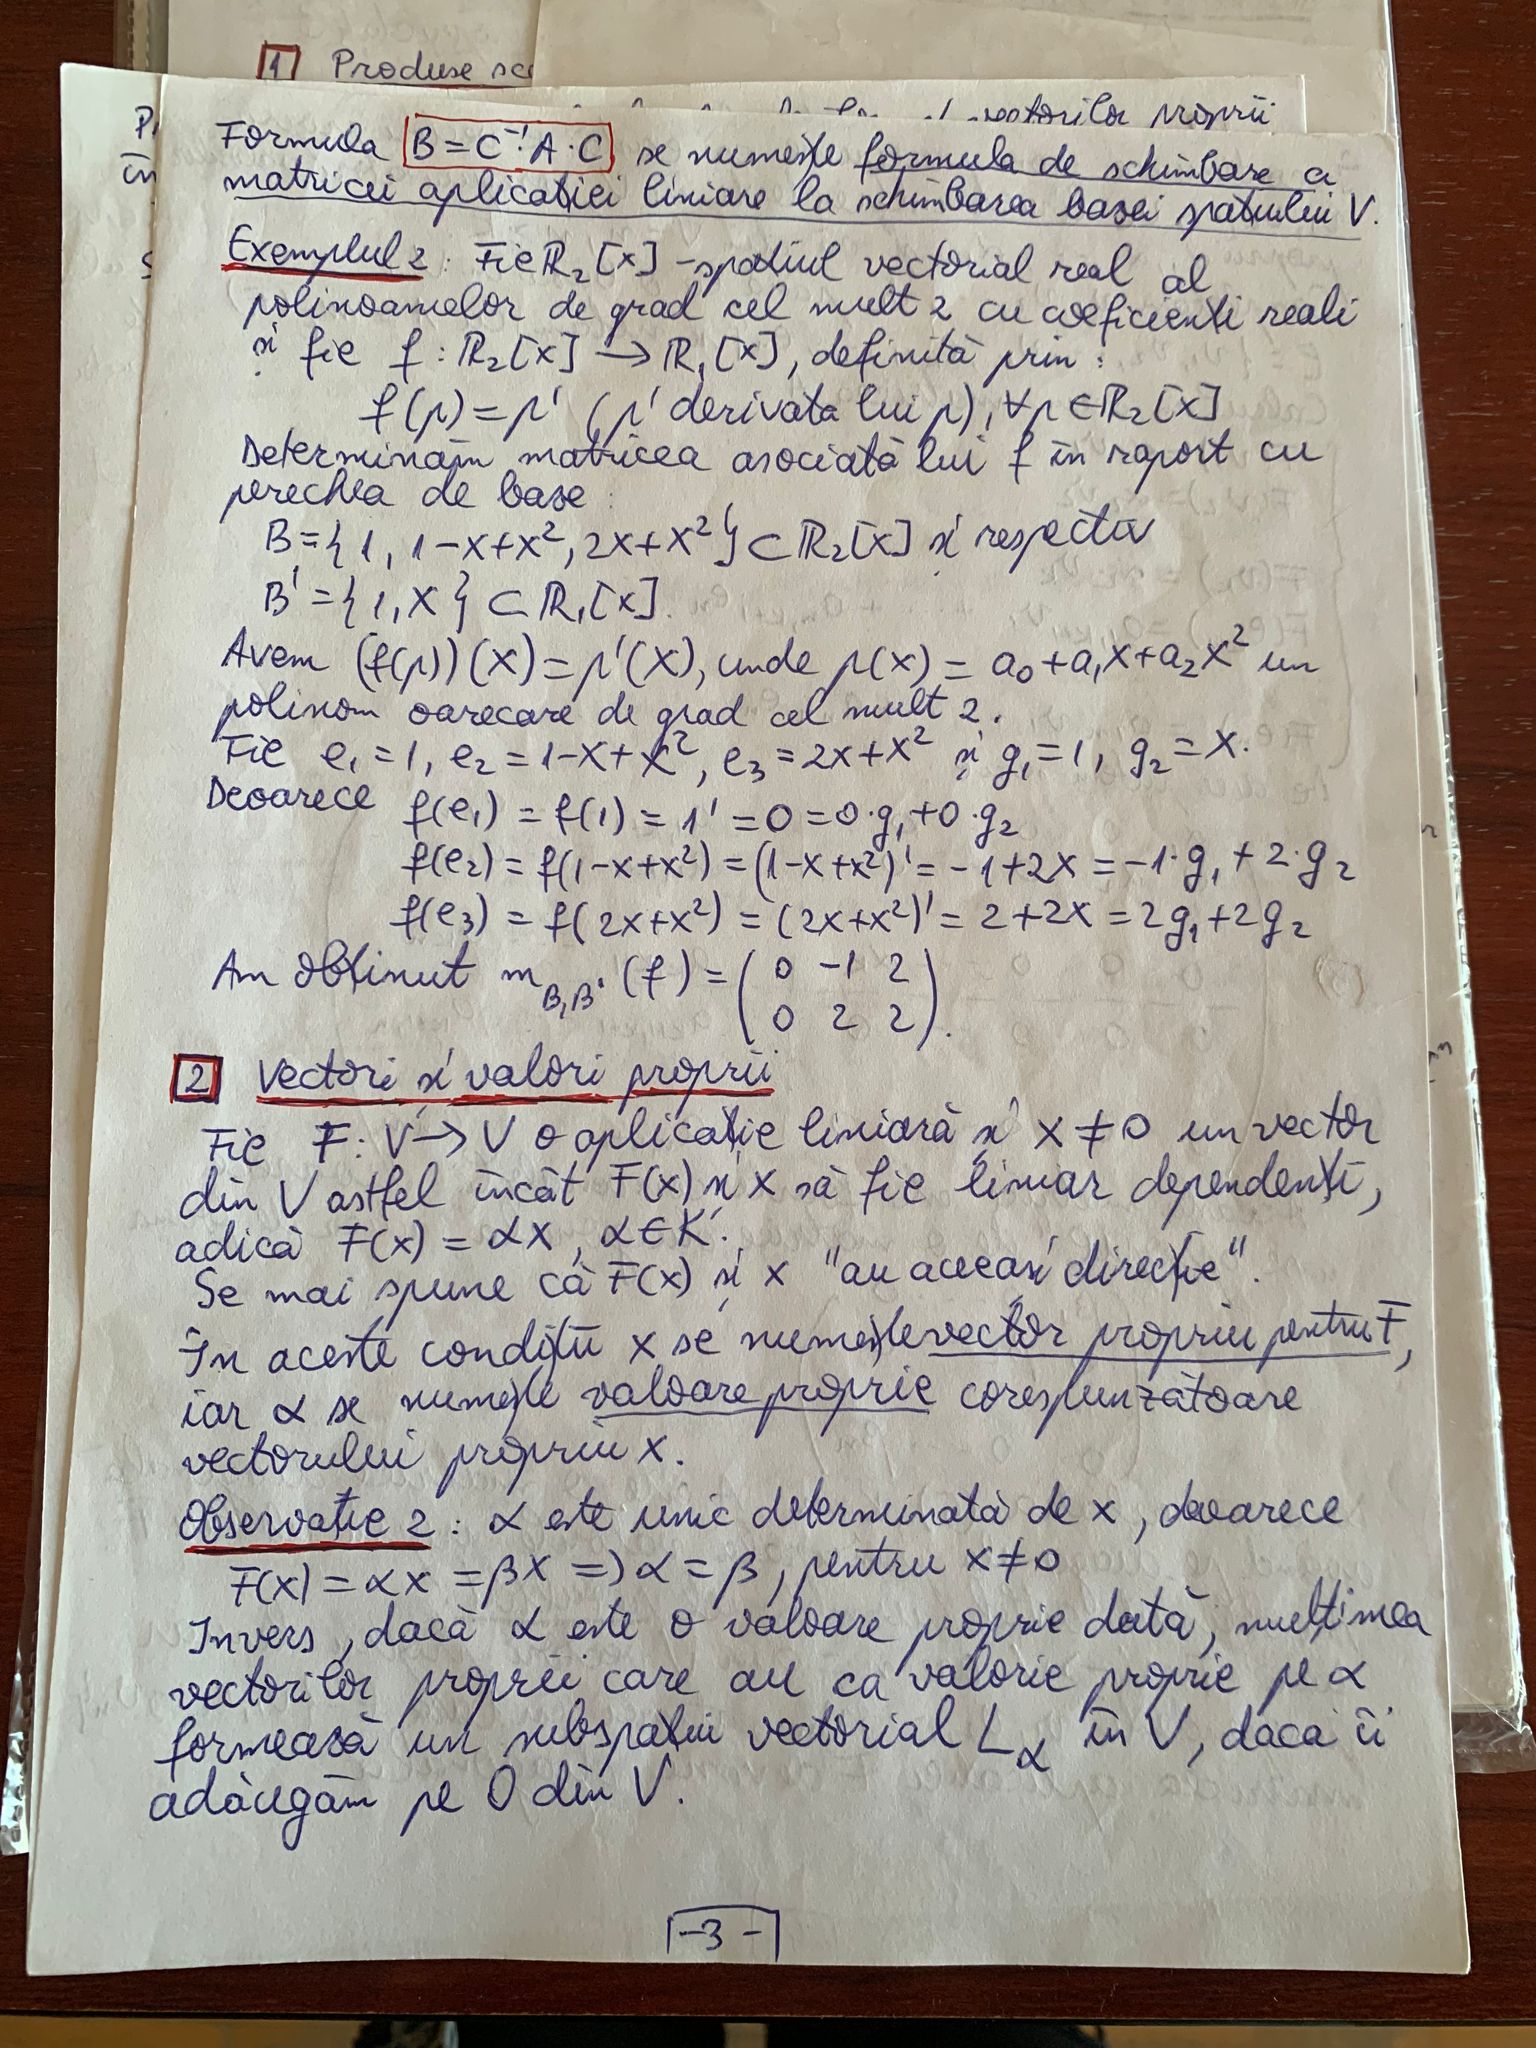 1 Produse
vectorilor proprii
Formula B = C⁻¹·A·C se numește formula de schimbare a
matricei aplicației liniare la schimbarea bazei spațiului V.
Exemplul 2: Fie ℝ₂[x] - spațiul vectorial real al
polinoamelor de grad cel mult 2 cu coeficienți reali
și fie f: ℝ₂[x] → ℝ₁[x], definită prin:
f(p) = p' (p' derivata lui p), ∀p ∈ ℝ₂[x]
Determinăm matricea asociată lui f în raport cu
perechea de baze:
B = {1, 1-x+x², 2x+x²} ⊂ ℝ₂[x] și respectiv
B' = {1, x} ⊂ ℝ₁[x].
Avem (f(p))(x) = p'(x), unde p(x) = a₀+a₁x+a₂x² un
polinom oarecare de grad cel mult 2.
Fie e₁=1, e₂=1-x+x², e₃=2x+x² și g₁=1, g₂=x.
Deoarece f(e₁) = f(1) = 1' = 0 = 0·g₁+0·g₂
f(e₂) = f(1-x+x²) = (1-x+x²)' = -1+2x = -1·g₁+2·g₂
f(e₃) = f(2x+x²) = (2x+x²)' = 2+2x = 2g₁+2g₂
Am obținut m_B,B' (f) = ( 0 -1 2 )
( 0 2 2 ).
2 Vectori și valori proprii
Fie F: V → V o aplicație liniară și x ≠ 0 un vector
din V astfel încât F(x) și x să fie liniar dependenți,
adică F(x) = αx, α ∈ K.
Se mai spune că F(x) și x "au aceeași direcție".
În aceste condiții x se numește vector propriu pentru F,
iar α se numește valoare proprie corespunzătoare
vectorului propriu x.
Observație 2: α este unic determinată de x, deoarece
F(x) = αx = βx => α = β, pentru x ≠ 0
Invers, dacă α este o valoare proprie dată, mulțimea
vectorilor proprii care au ca valorie proprie pe α
formează un subspațiu vectorial L_α în V, dacă îi
adăugăm pe 0 din V.
-3-